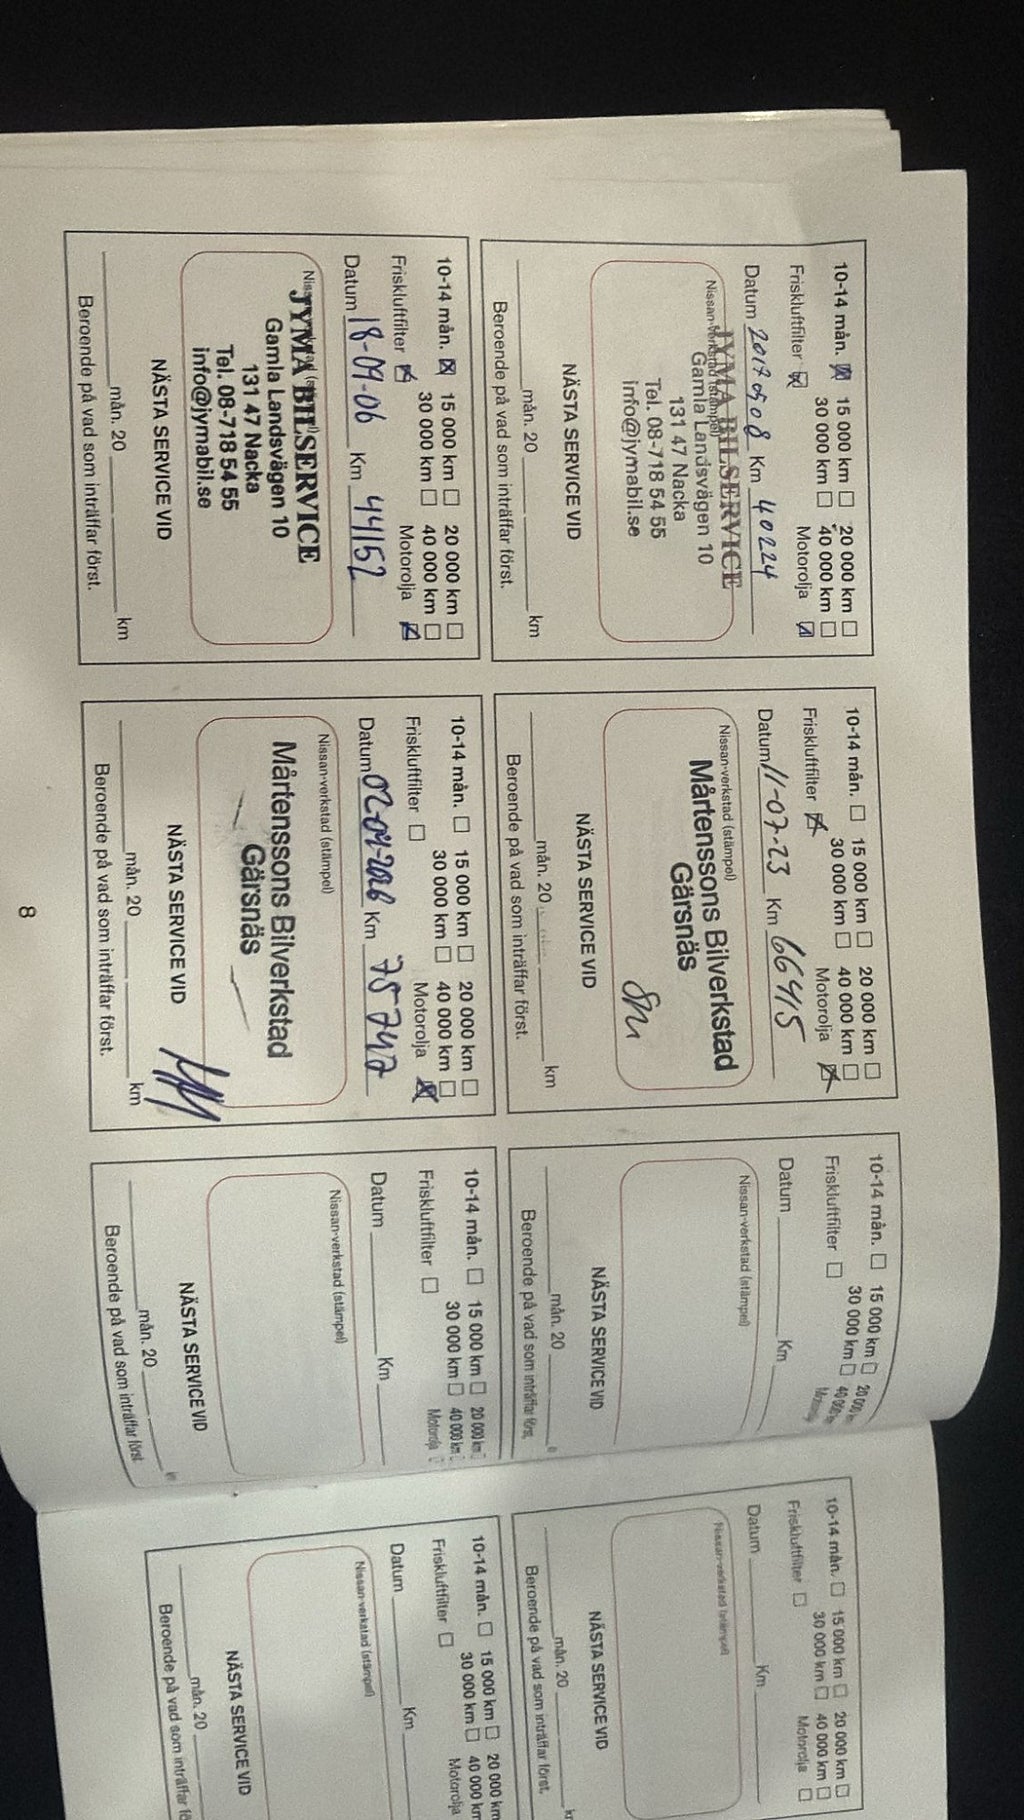 10-14 mån. ☒ 15 000 km ☐ 20 000 km ☐
30 000 km ☐ 40 000 km ☐
Friskluftfilter ☒ Motorolja ☒
Datum 2017 0508 Km 40224
Nissan-verkstad (stämpel)
JYMA BILSERVICE
Gamla Landsvägen 10
131 47 Nacka
Tel. 08-718 54 55
info@jymabil.se
NÄSTA SERVICE VID
mån. 20 km
Beroende på vad som inträffar först.
10-14 mån. ☒ 15 000 km ☐ 20 000 km ☐
30 000 km ☐ 40 000 km ☐
Friskluftfilter ☒ Motorolja ☒
Datum 18-09-06 Km 44152
JYMA BILSERVICE
Gamla Landsvägen 10
131 47 Nacka
Tel. 08-718 54 55
info@jymabil.se
NÄSTA SERVICE VID
mån. 20 km
Beroende på vad som inträffar först.
10-14 mån. ☐ 15 000 km ☐ 20 000 km ☐
30 000 km ☐ 40 000 km ☐
Friskluftfilter ☒ Motorolja ☒
Datum 11-07-23 Km 66415
Nissan-verkstad (stämpel)
Mårtenssons Bilverkstad
Gärsnäs
NÄSTA SERVICE VID
mån. 20 km
Beroende på vad som inträffar först.
10-14 mån. ☐ 15 000 km ☐ 20 000 km ☐
30 000 km ☐ 40 000 km ☐
Friskluftfilter ☐ Motorolja ☒
Datum Km 75742
Nissan-verkstad (stämpel)
Mårtenssons Bilverkstad
Gärsnäs
NÄSTA SERVICE VID
mån. 20 km
Beroende på vad som inträffar först.
10-14 mån. ☐ 15 000 km ☐ 20 000 km
30 000 km ☐ 40 000 km
Friskluftfilter ☐ Motorolja
Datum Km
Nissan-verkstad (stämpel)
NÄSTA SERVICE VID
mån. 20
Beroende på vad som inträffar först.
10-14 mån. ☐ 15 000 km ☐ 20 000 km
30 000 km ☐ 40 000 km
Friskluftfilter ☐ Motorolja
Datum Km
Nissan-verkstad (stämpel)
NÄSTA SERVICE VID
mån. 20
Beroende på vad som inträffar först
8
10-14 mån. ☐ 15 000 km ☐ 20 000 km ☐
30 000 km ☐ 40 000 km ☐
Friskluftfilter ☐ Motorolja ☐
Datum Km
Nissan-verkstad (stämpel)
NÄSTA SERVICE VID
mån. 20
Beroende på vad som inträffar först.
10-14 mån. ☐ 15 000 km ☐ 20 000 km
30 000 km ☐ 40 000 km
Friskluftfilter ☐ Motorolja
Datum Km
Nissan-verkstad (stämpel)
NÄSTA SERVICE VID
mån. 20
Beroende på vad som inträffar